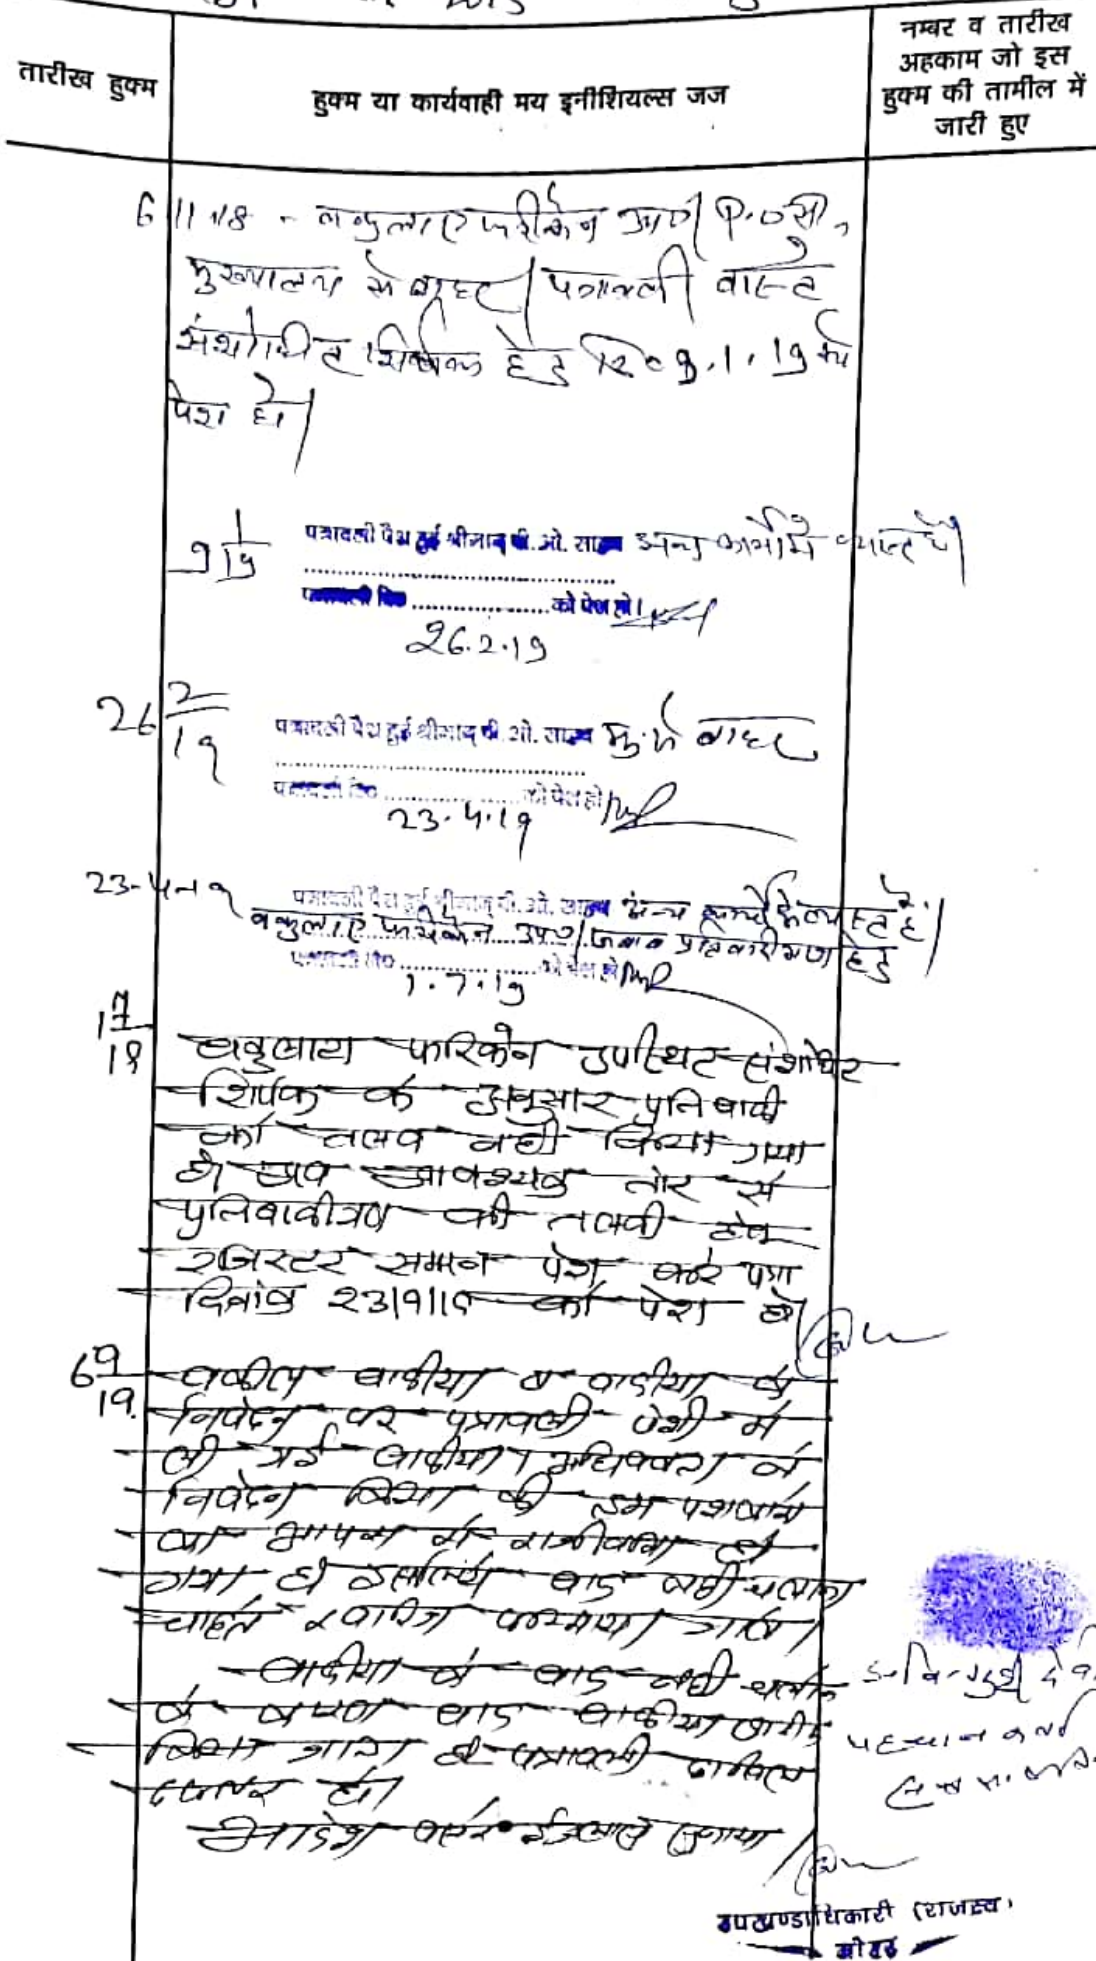 तारीख हुक्म
हुक्म या कार्यवाही मय इनीशियल्स जज
नम्बर व तारीख
अहकाम जो इस
हुक्म की तामील में
जारी हुए
6/11/18 - वकुलाए फरीकेन उप0/ P.O सा0
मुख्यालय से बाहर/ पत्रावली वास्ते
संशोधित शिर्षक हेतु दि0 9.1.19 को
पेश हो/
9/1/19 पत्रावली पेश हुई श्रीमान् पी. ओ. साहब अन्य कार्यो मे व्यस्त है/
पत्रावली दि0 .................. को पेश हो।
26.2.19
26 2/19 पत्रावली पेश हुई श्रीमान् पी. ओ. साहब मु. से बाहर
पत्रावली दि0 .................. को पेश हो।
23.4.19
23-4-19 पत्रावली पेश हुई श्रीमान् पी. ओ. साहब अन्य कार्य मे व्यस्त है/
वकुलाए फरीकेन उप0/ जवाब प्रतिवादीगण हेतु
पत्रावली दि0 .................. को पेश हो
1.7.19
1/7/19 वकुलाय फरिकेन उपस्थित संशोधित
शिर्षक के अनुसार प्रतिवादी
को तलब नही किया गया
है अत आवश्यक तोर से
प्रतिवादीगण की तलवी हेतु
रजिस्टर समान पेश करे पत्रा
दिनांक 23/9/19 को पेश हो/
6 9/19. वकील वादीया व वादीया के
निवेदन पर पत्रावली पेशी में
ली गई वादीया । अधिवक्ता ने
निवेदन किया की हम पक्षकारो
का आपस में राजीनामा हो
गया है इसलिये वाद नही चलाना
चाहते खारिज फरमाया जावे।
वादीया के वाद नही चलाने
के कारण वाद वादीया खारीज
किया जाता है पत्रावली दाखिल
दफ्तर हो।
आदेश सरे ईजलास सुनाया
पहचान कर्ता
उपखण्डाधिकारी (राजस्व)